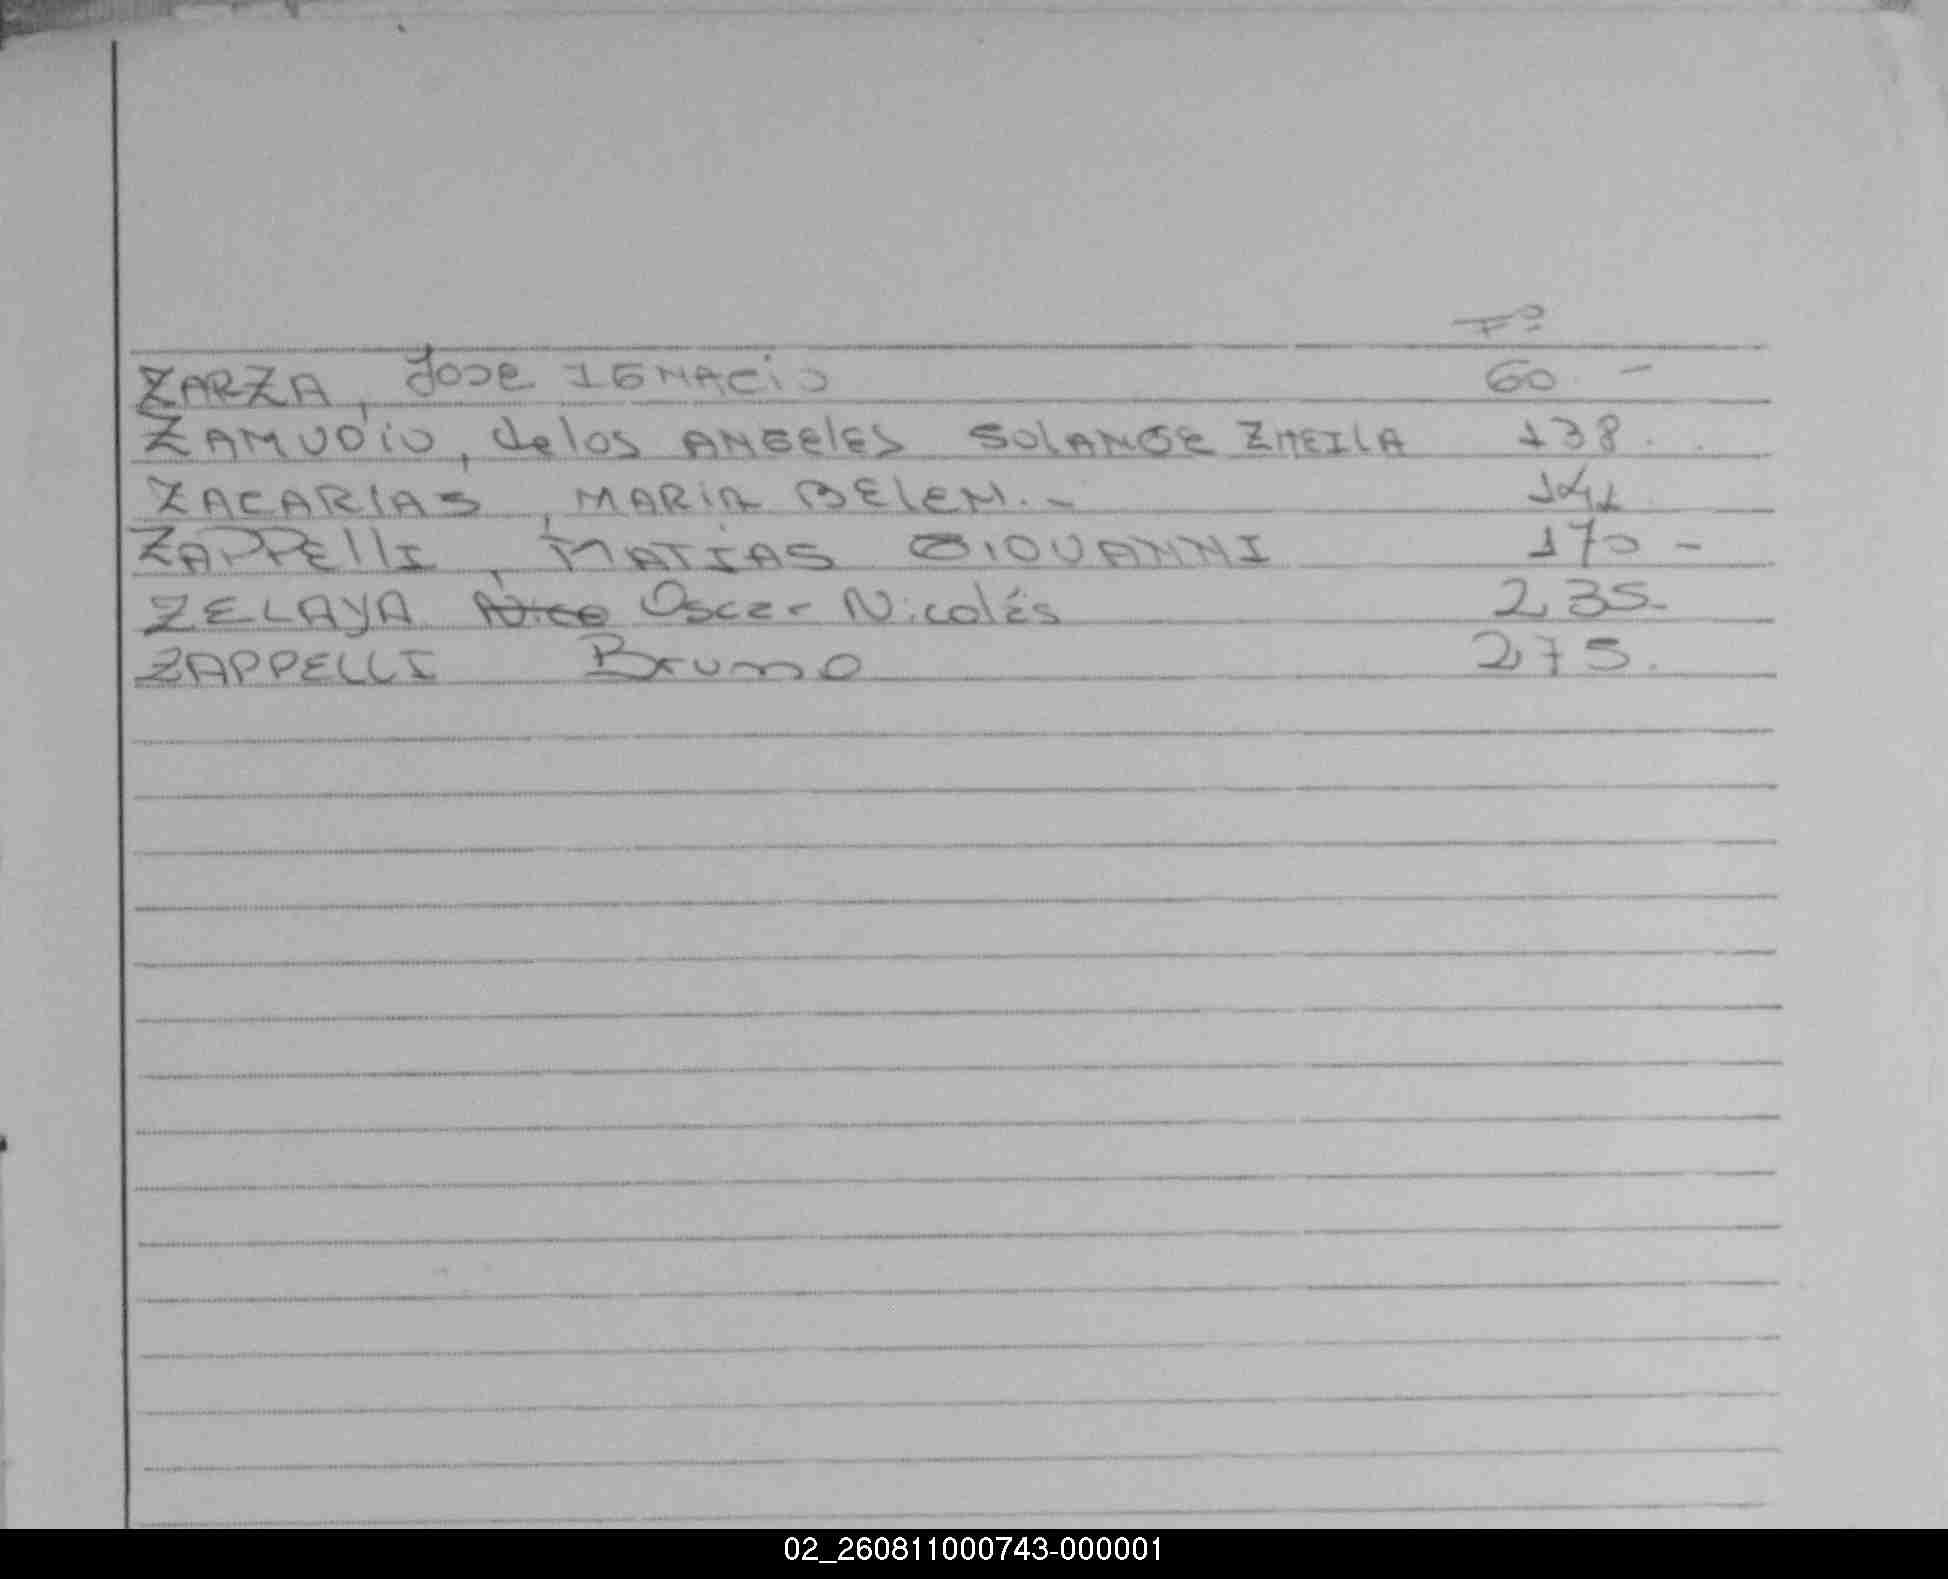 Fº
ZARZA, Jose IGNACIO 60. -
ZAMUDIO, de los ANGELES SOLANGE 138.
ZACARIAS, MARIA BELEN.- 141
ZAPPELLI, MATIAS GIOVANNI 170 -
ZELAYA Nico Oscar Nicolás 235.-
ZAPPELLI Bruno 275.
02_260811000743-000001